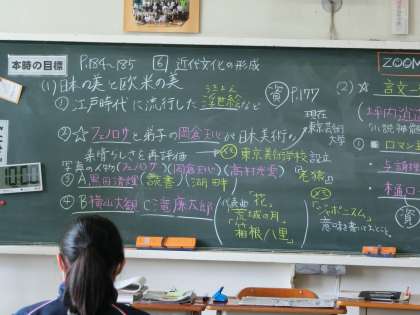 本時の目標
P.184~185 6 近代文化の形成
ZOOM
(1)日本の美と欧米の美
①江戸時代に流行した浮世絵など
うきよえ
資 P.177
②☆フェノロサと弟子の岡倉天心が日本美術の
素晴らしさを再評価
※5 東京美術学校設立
現在
東京芸術
大学
写真のメガネ(フェノロサ)(岡倉天心)(高村光雲)「老猿」
③A黒田清輝「読書」「湖畔」
④B横山大観 C滝廉太郎
代表曲
「花」
「荒城の月」
「箱根八里」
「ジャポニスム」
(2)☆言文一
坪内逍
①ロマン
与謝
樋口
資
10:00